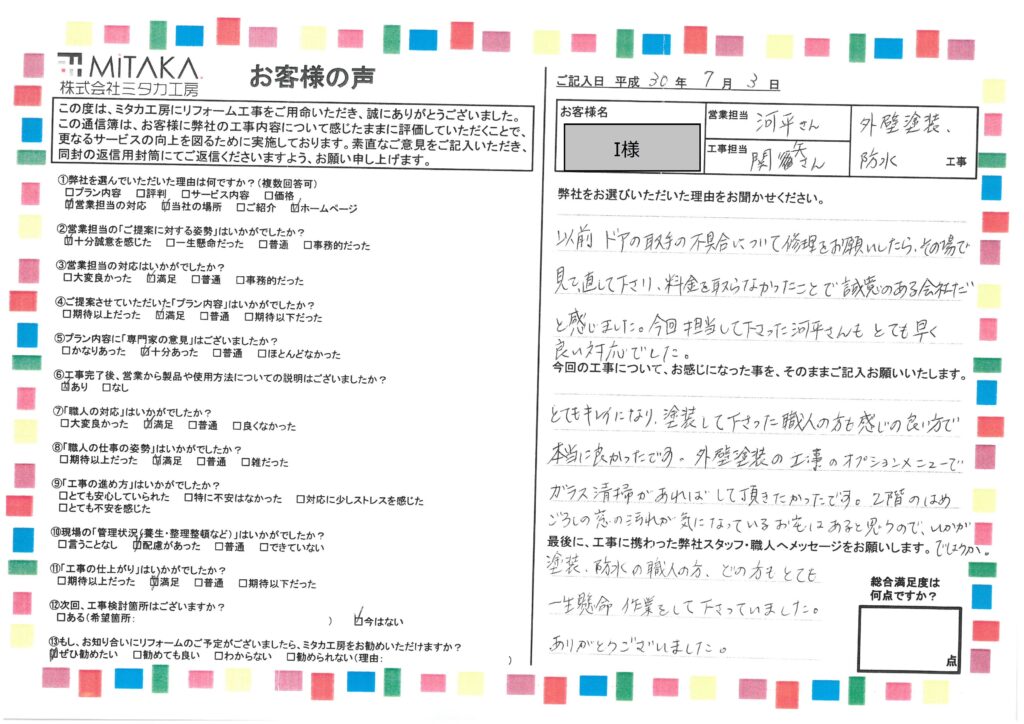 MiTAKA.
株式会社ミタカ工房
お客様の声
この度は、ミタカ工房にリフォーム工事をご用命いただき、誠にありがとうございました。
この通信簿は、お客様に弊社の工事内容について感じたままに評価していただくことで、
更なるサービスの向上を図るために実施しております。素直なご意見をご記入いただき、
同封の返信用封筒にてご返信くださいますよう、お願い申し上げます。
①弊社を選んでいただいた理由は何ですか？(複数回答可)
□プラン内容 □評判 □サービス内容 □価格
☑営業担当の対応 ☑当社の場所 □ご紹介 ☑ホームページ
②営業担当の「ご提案に対する姿勢」はいかがでしたか？
☑十分誠意を感じた □一生懸命だった □普通 □事務的だった
③営業担当の対応はいかがでしたか？
□大変良かった ☑満足 □普通 □事務的だった
④ご提案させていただいた「プラン内容」はいかがでしたか？
□期待以上だった ☑満足 □普通 □期待以下だった
⑤プラン内容に「専門家の意見」はございましたか？
□かなりあった ☑十分あった □普通 □ほとんどなかった
⑥工事完了後、営業から製品や使用方法についての説明はございましたか？
☑あり □なし
⑦「職人の対応」はいかがでしたか？
□大変良かった ☑満足 □普通 □良くなかった
⑧「職人の仕事の姿勢」はいかがでしたか？
□期待以上だった ☑満足 □普通 □雑だった
⑨「工事の進め方」はいかがでしたか？
□とても安心していられた □特に不安はなかった □対応に少しストレスを感じた
□とても不安を感じた
⑩現場の「管理状況(養生・整理整頓など)」はいかがでしたか？
□言うことなし ☑配慮があった □普通 □できていない
⑪「工事の仕上がり」はいかがでしたか？
□期待以上だった ☑満足 □普通 □期待以下だった
⑫次回、工事検討箇所はございますか？
□ある(希望箇所: ) ☑今はない
⑬もし、お知り合いにリフォームのご予定がございましたら、ミタカ工房をお勧めいただけますか？
☑ぜひ勧めたい □勧めても良い □わからない □勧められない(理由: )
ご記入日 平成 30 年 7 月 3 日
お客様名
I様
営業担当 河平さん
工事担当 関さん
外壁塗装、
防水 工事
弊社をお選びいただいた理由をお聞かせください。
以前 ドアの取手の不具合について修理をお願いしたら、その場で
見て、直して下さり、料金を取らなかったことで誠意のある会社だ
と感じました。今回 担当して下さった河平さんも とても早く
良い対応でした。
今回の工事について、お感じになった事を、そのままご記入お願いいたします。
とてもキレイになり、塗装して下さった職人の方も感じの良い方で
本当に良かったです。外壁塗装の工事のオプションメニューで
ガラス清掃があればして頂きたかったです。2階のはめ
ごろしの窓の汚れが気になっているお宅はあると思うので、いかが
でしょうか。
最後に、工事に携わった弊社スタッフ・職人へメッセージをお願いします。
塗装、防水の職人の方、どの方もとても
一生懸命 作業をして下さっていました。
ありがとうございました。
総合満足度は
何点ですか？
点